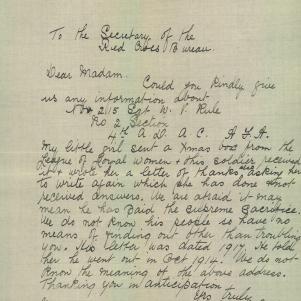 To the Secretary of the
Red Cross Bureau.
Dear Madam.
Could you kindly give
us any information about
No 2115 Sgt W. P. Rule
No 2 Section
4th A D. A. C. A I F.
My little girl sent a Xmas box from the
League of Loyal Women & this soldier received
it & wrote her a letter of thanks asking her
to write again which she has done & not
received answers. We are afraid it may
mean he has paid the supreme sacrifice.
We do not know his people so have no
means of finding out other than troubling
you. His letter was dated 1917. He told
her he went out in Oct 1914. We do not
know the meaning of the above address.
Thanking you in anticipation
Yrs truly